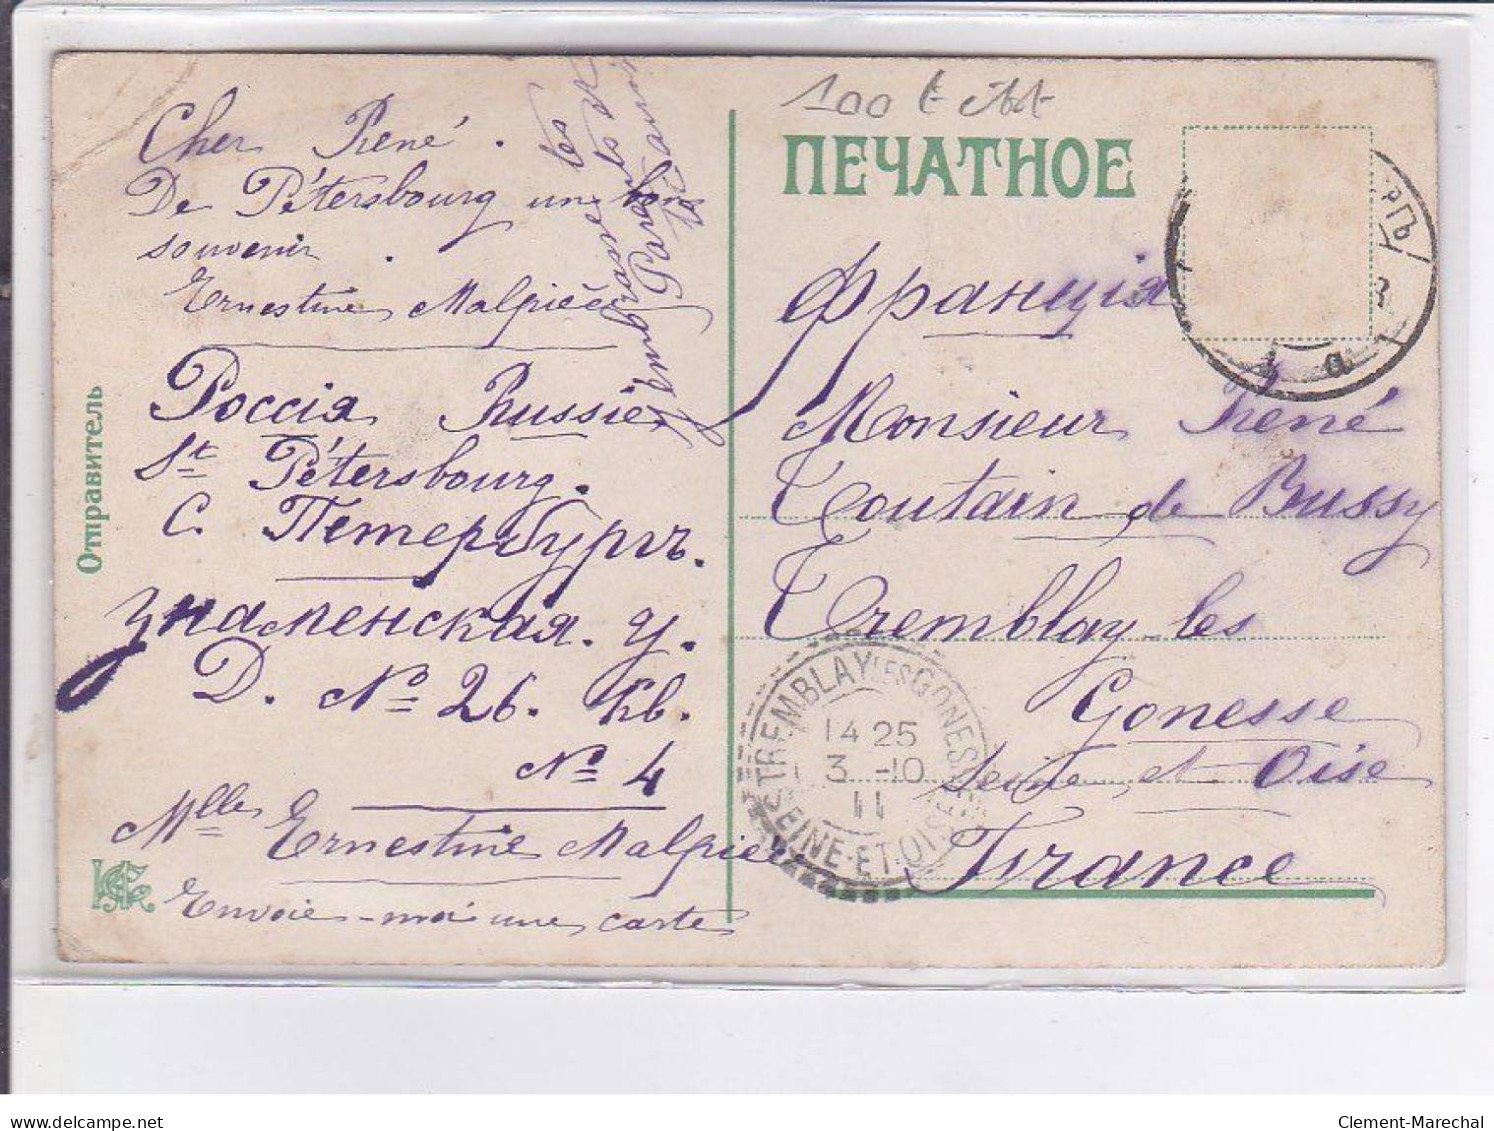 100 €
ПЕЧАТНОЕ
Cher René.
De Pétersbourg un bon
souvenir.
Ernestine Malpièce
Embrasse les
Parents et
Франція
Monsieur René
Toutain de Bussy
Tremblay-les
Gonesse
Seine et Oise
France
Отправитель
Россія Russie
St Pétersbourg.
С. Петербургъ.
Знаменская. у.
Д. № 26. Кв.
№ 4
Mlle Ernestine Malpièce
Envoie-moi une carte
TREMBLAY LES GONESSE
14 25
3 -10
11
SEINE-ET-OISE
РГЪ
а
delcampe.net
Clement-Marechal